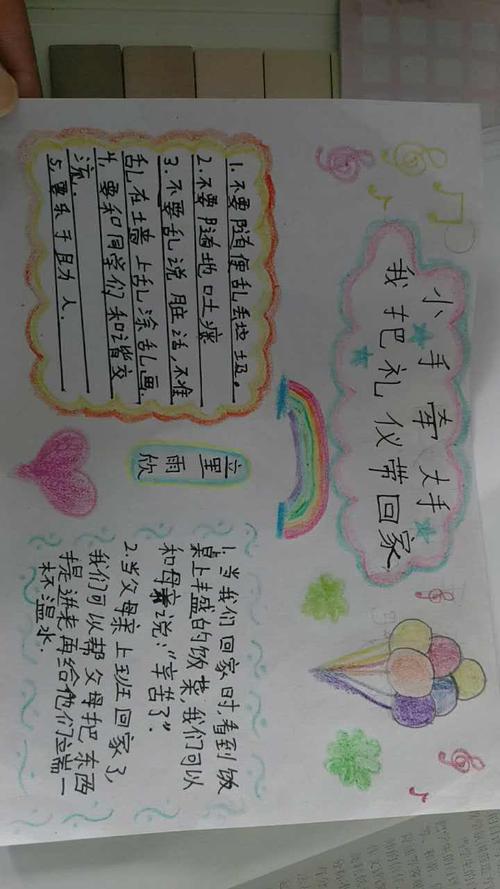 小手牵大手
我把礼仪带回家
1.不要随便乱丢垃圾。
2.不要随地吐痰
3.不要乱说脏话,不准
乱在墙上乱涂乱画.
4.要和同学们和谐交
流.
5.要乐于助人.
童
雨
欣
1.当我们回家时,看到饭
桌上丰盛的饭菜,我们可以
和母亲说:“辛苦了”.
2.当父母亲上班回家了,
我们可以帮父母把东西
提进来再给他们端一
杯温水.